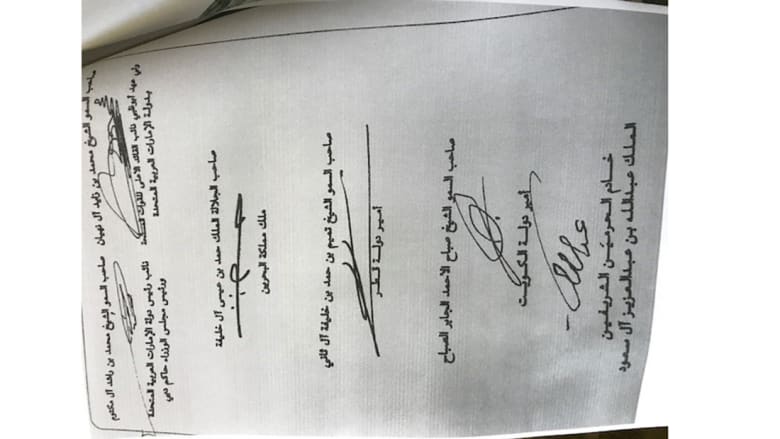 صاحب السمو الشيخ محمد بن زايد آل نهيان
ولي عهد أبوظبي نائب القائد الأعلى للقوات المسلحة
بدولة الإمارات العربية المتحدة
صاحب السمو الشيخ محمد بن راشد آل مكتوم
نائب رئيس دولة الإمارات العربية المتحدة
ورئيس مجلس الوزراء حاكم دبي
صاحب الجلالة الملك حمد بن عيسى آل خليفة
ملك مملكة البحرين
صاحب السمو الشيخ تميم بن حمد بن خليفة آل ثاني
أمير دولة قطر
صاحب السمو الشيخ صباح الأحمد الجابر الصباح
أمير دولة الكويت
عبدالله
خادم الحرمين الشريفين
الملك عبدالله بن عبدالعزيز آل سعود